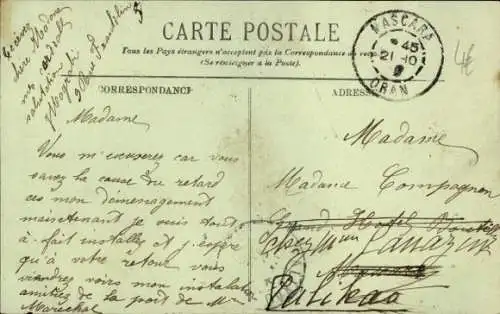 CARTE POSTALE
Tous les Pays étrangers n'acceptent pas la Correspondance au
(Se renseigner à la Poste).
MASCARA
45
21 10
ORAN
4€
CORRESPONDANCE
ADRESSE
chère Madame
mes cordiales
salutations
Rue
Madame
Vous m'excuserez car vous
savez la cause du retard
ces mon déménagement
maintenant je suis tout
à fait installés et j'espère
qu'à votre retour vous
viendrez voirs mon instalation
amitiez de la part de Mr
Marechal
Madame
Madame Compagnon
Grand Hotel
chez Mme
Palikao